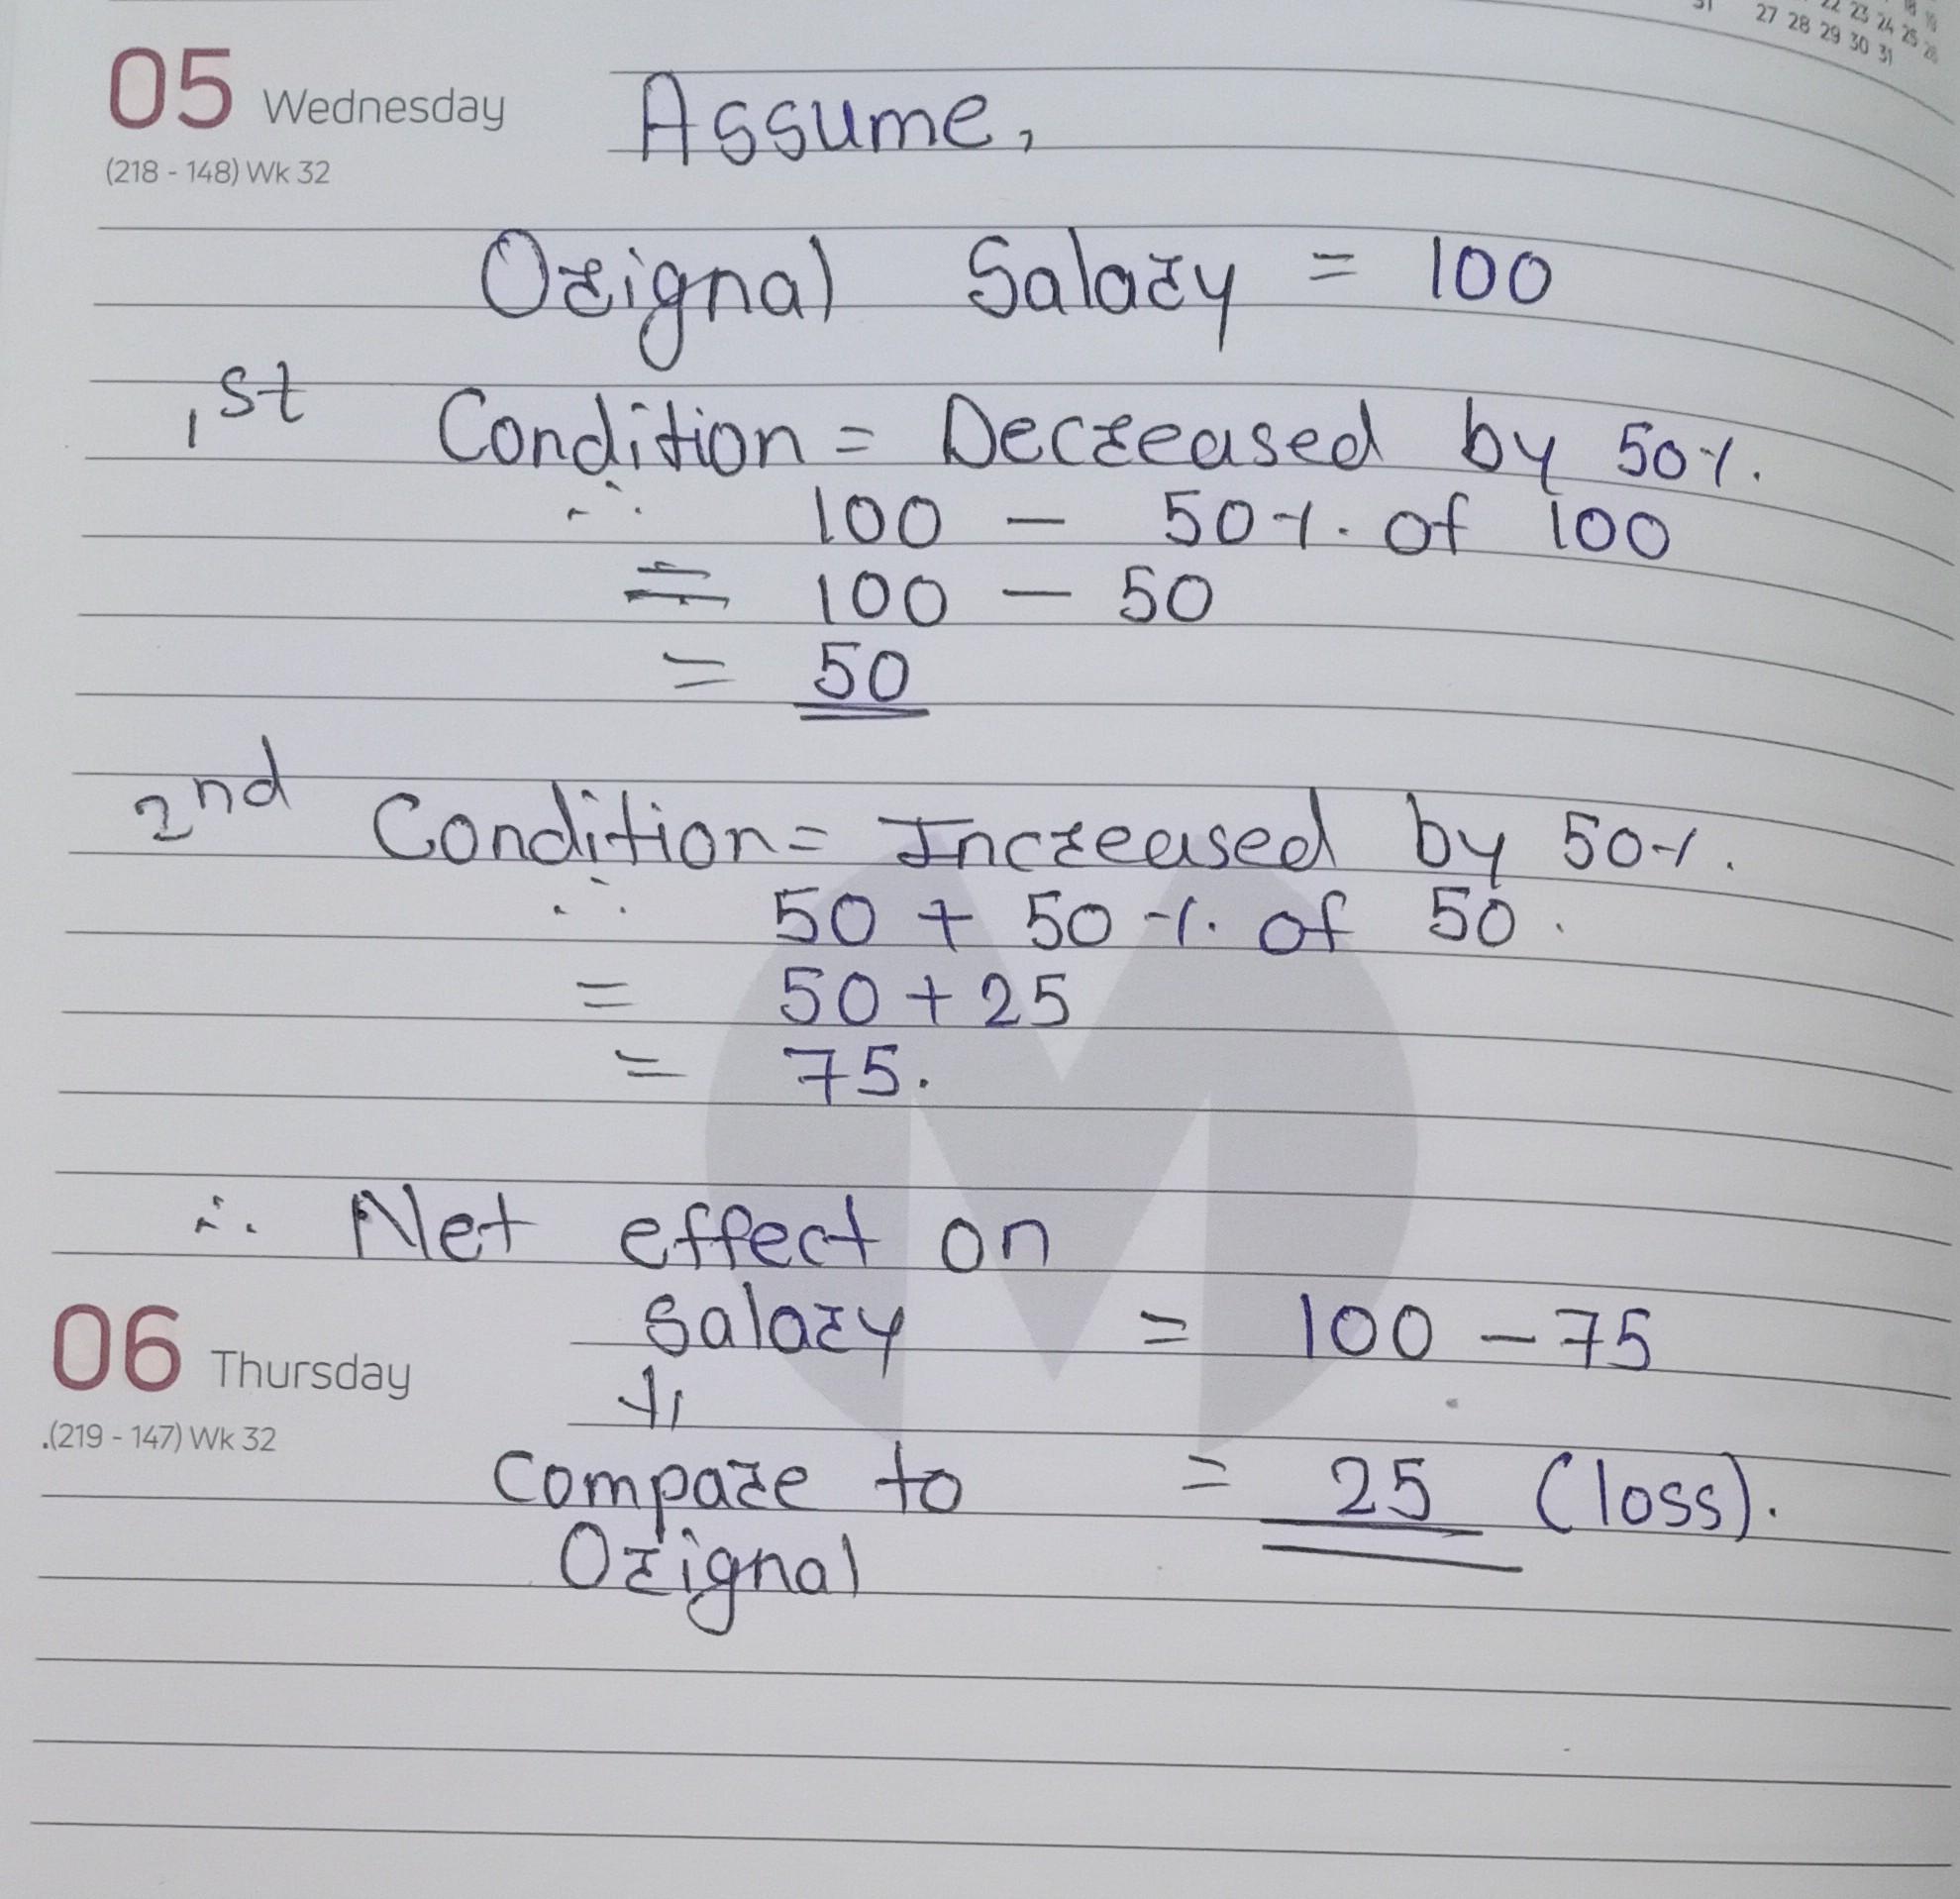 31 27 28 29 30 31
22 23 24 25 26
05 Wednesday
(218 - 148) Wk 32
Assume,
Orignal Salary = 100
1st Condition = Decreased by 50%.
∴ 100 - 50%. of 100
= 100 - 50
= 50
2nd Condition = Increased by 50%.
∴ 50 + 50%. of 50.
= 50 + 25
= 75.
∴ Net effect on
Salary = 100 - 75
06 Thursday
.(219 - 147) Wk 32
Compare to = 25 (loss).
Orignal